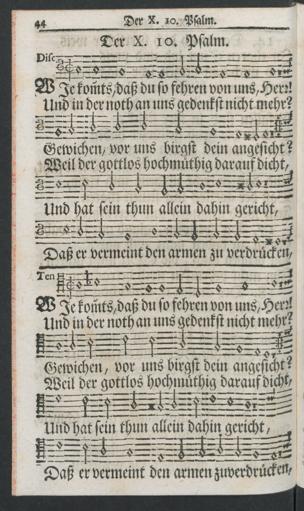 44 Der X. 10. Psalm.
Der X. 10. Psalm.
Disc
WJe kom̃ts, daß du so fehren von uns, Herꝛ!
Und in der noth an uns gedenkst nicht mehr?
Gewichen, vor uns birgst dein angesicht?
Weil der gottlos hochmüthig darauf dicht,
Und hat sein thun allein dahin gericht,
Daß er vermeint den armen zu verdrücken,
Ten
WJe kom̃ts, daß du so fehren von uns, Herꝛ!
Und in der noth an uns gedenkst nicht mehr?
Gewichen, vor uns birgst dein angesicht?
Weil der gottlos hochmüthig darauf dicht,
Und hat sein thun allein dahin gericht,
Daß er vermeint den armen zuverdrücken,